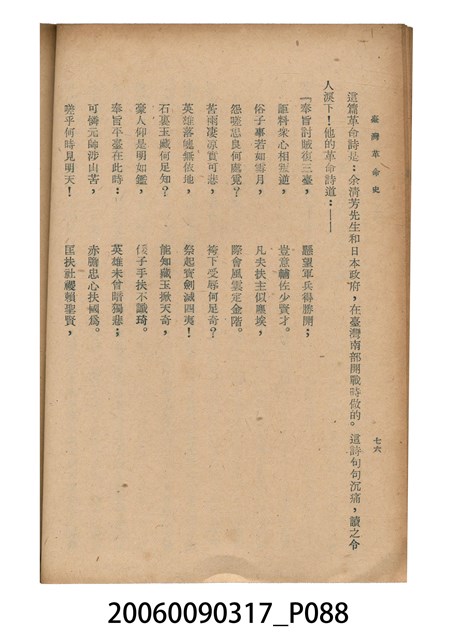 臺灣革命史
七六
這篇革命詩是：余清芳先生和日本政府，在臺灣南部開戰時做的。這詩句句沉痛，讀之令
人淚下！他的革命詩道：——
「奉旨討賊復三臺， 願望軍兵得勝開；
誰料衆心相叛逆， 豈意輔佐少賢才。
俗子事若如雪月， 凡夫扶主似塵埃，
怨嗟思良何處覓？ 際會風雲定金階。
苦雨凄凉實可悲， 袴下受辱何足奇？
英雄落魄無依地， 祭起寶劍滅四夷！
石裏玉藏何足知？ 能知藏玉掀天奇，
豪人仰是明如鑑， 孺子手扶不識琦。
奉旨平臺在此時： 英雄未曾暗獨悲；
可憐元帥涉山苦， 赤膽忠心扶國爲。
嗟乎何時見明天！ 匡扶社稷賴聖賢，
20060090317_P088